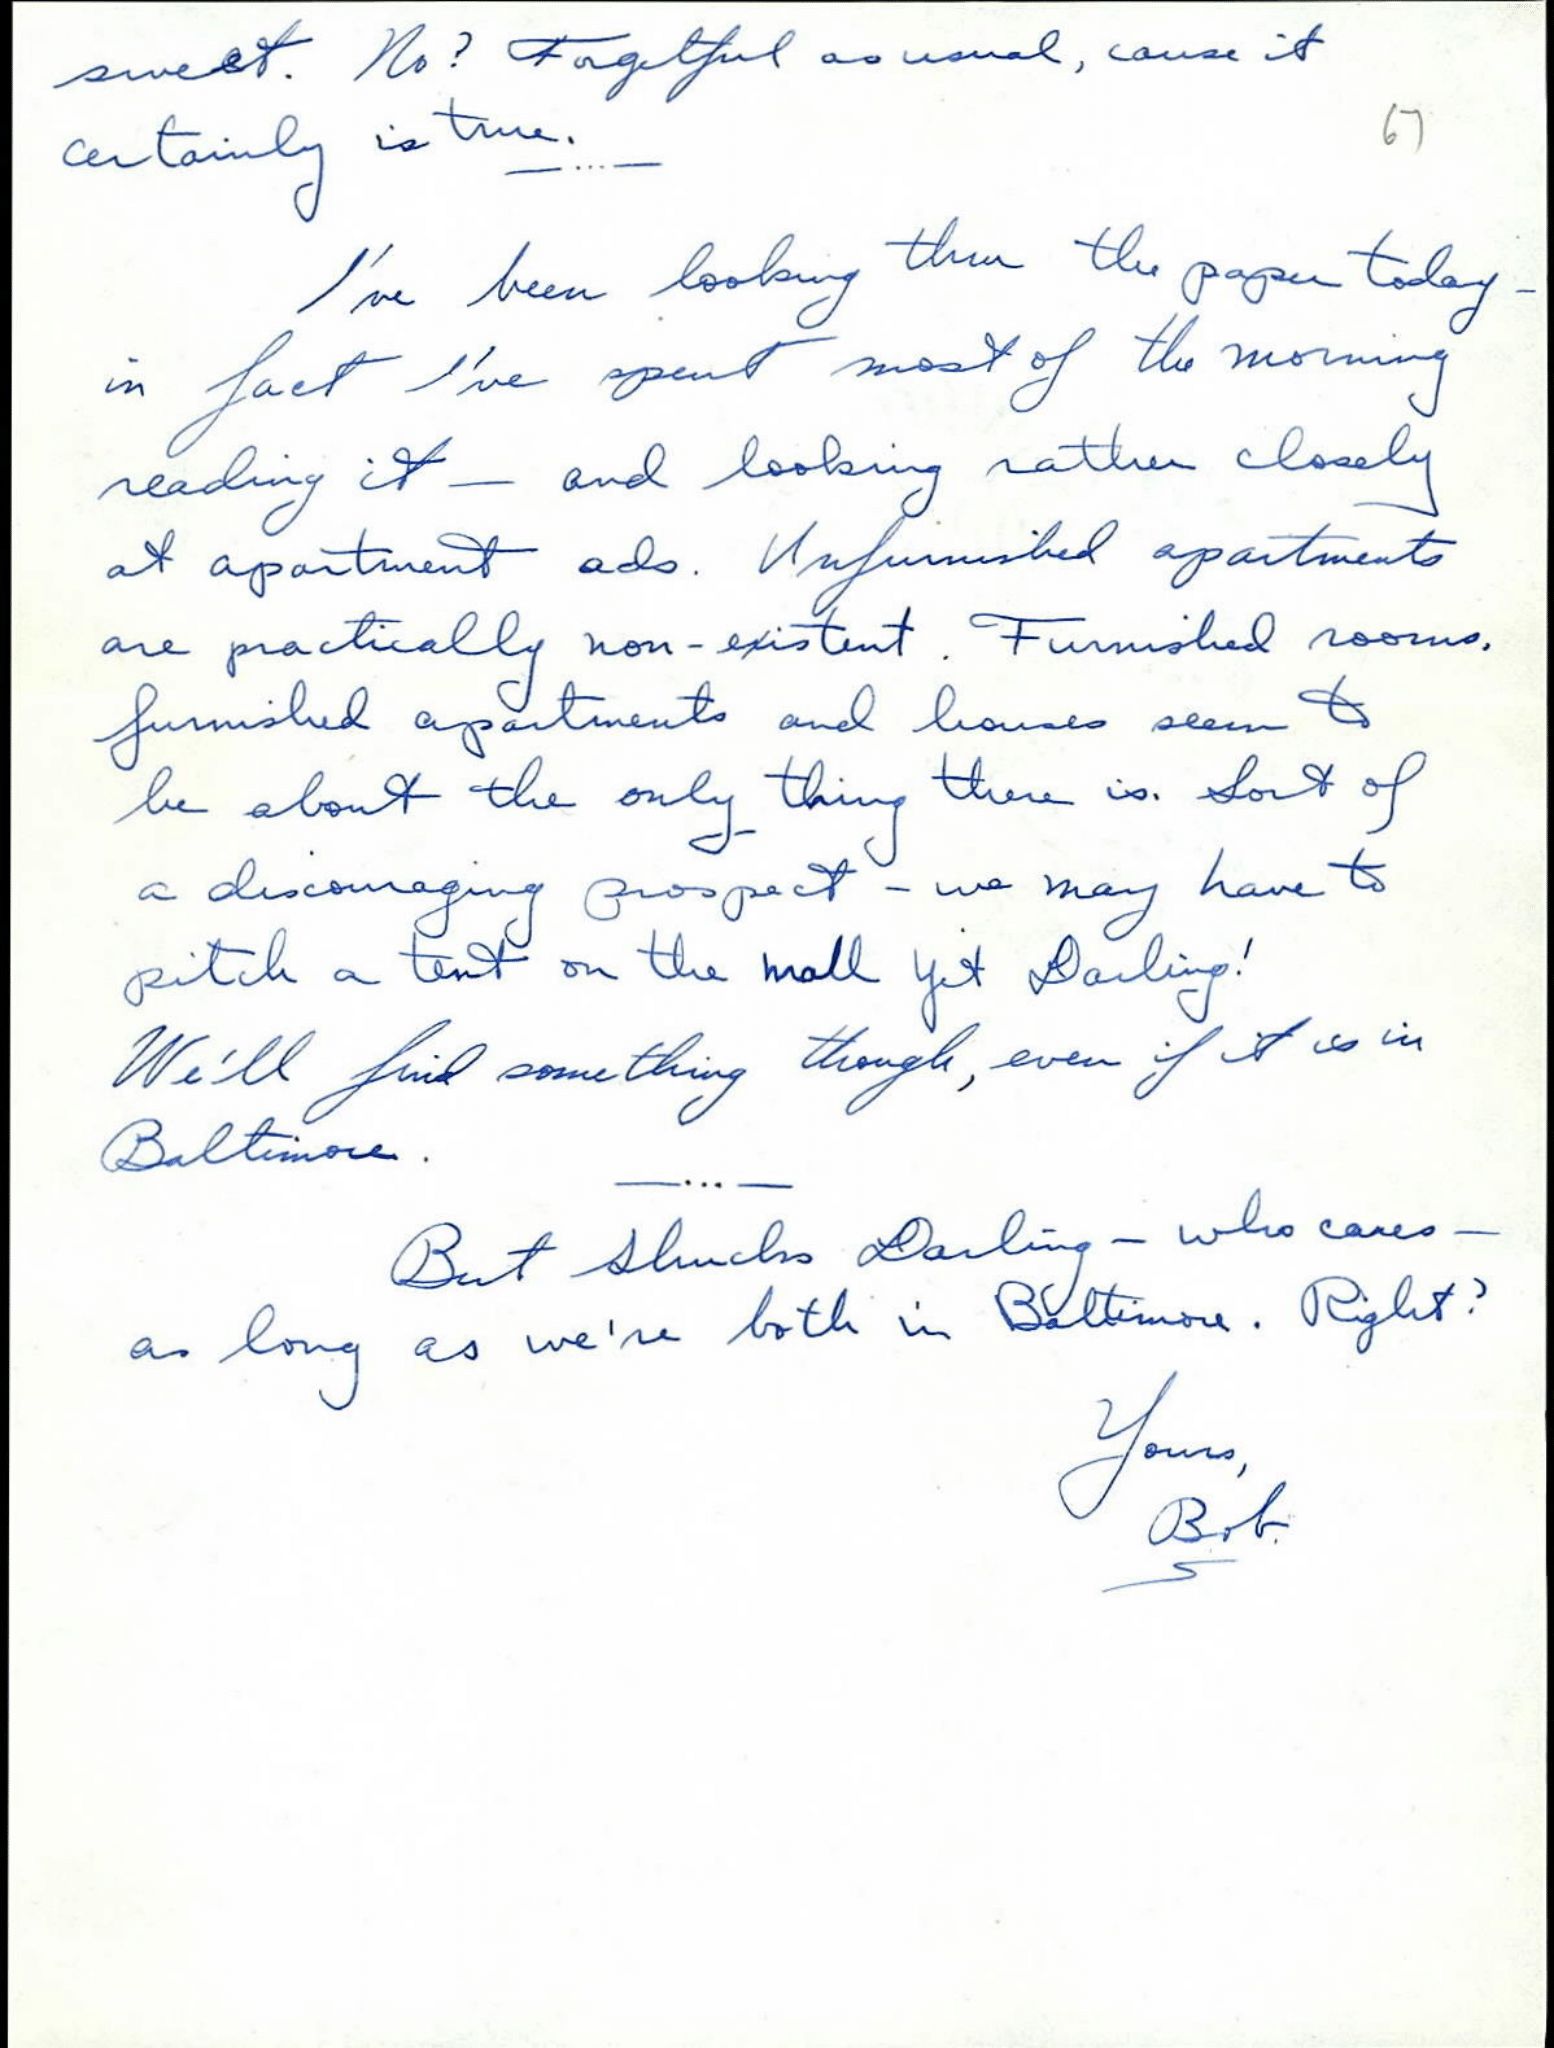 sweet. No? Forgetful as usual, cause it
certainly is true.
67
—...—
I've been looking thru the paper today –
in fact I've spent most of the morning
reading it — and looking rather closely
at apartment ads. Unfurnished apartments
are practically non-existent. Furnished rooms,
furnished apartments and houses seem to
be about the only thing there is. Sort of
a discouraging prospect – we may have to
pitch a tent on the mall yet Darling!
We'll find something though, even if it is in
Baltimore.
—...—
But Shucks Darling – who cares –
as long as we're both in Baltimore. Right?
Yours,
Bob.